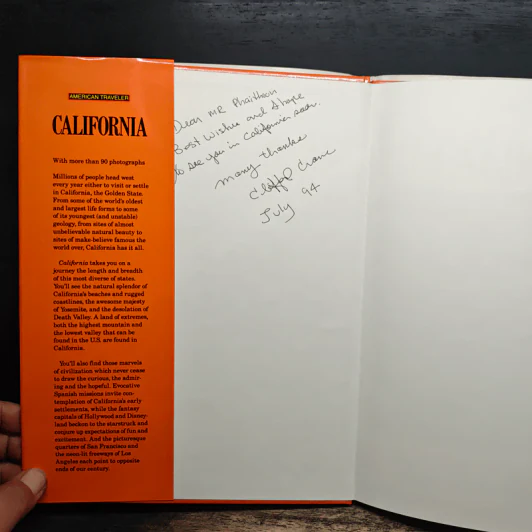 AMERICAN TRAVELER
CALIFORNIA
With more than 90 photographs
Millions of people head west
every year either to visit or settle
in California, the Golden State.
From some of the world's oldest
and largest life forms to some
of its youngest (and unstable)
geology, from sites of almost
unbelievable natural beauty to
sites of make-believe famous the
world over, California has it all.
California takes you on a
journey the length and breadth
of this most diverse of states.
You'll see the natural splendor of
California's beaches and rugged
coastlines, the awesome majesty
of Yosemite, and the desolation of
Death Valley. A land of extremes,
both the highest mountain and
the lowest valley that can be
found in the U.S. are found in
California.
You'll also find those marvels
of civilization which never cease
to draw the curious, the admir-
ing and the hopeful. Evocative
Spanish missions invite con-
templation of California's early
settlements, while the fantasy
capitals of Hollywood and Disney-
land beckon to the starstruck and
conjure up expectations of fun and
excitement. And the picturesque
quarters of San Francisco and
the neon-lit freeways of Los
Angeles each point to opposite
ends of our century.
Dear MR Phaithoon
Best Wishes and I hope
to see you in California soon.
many thanks
Crane
July 94